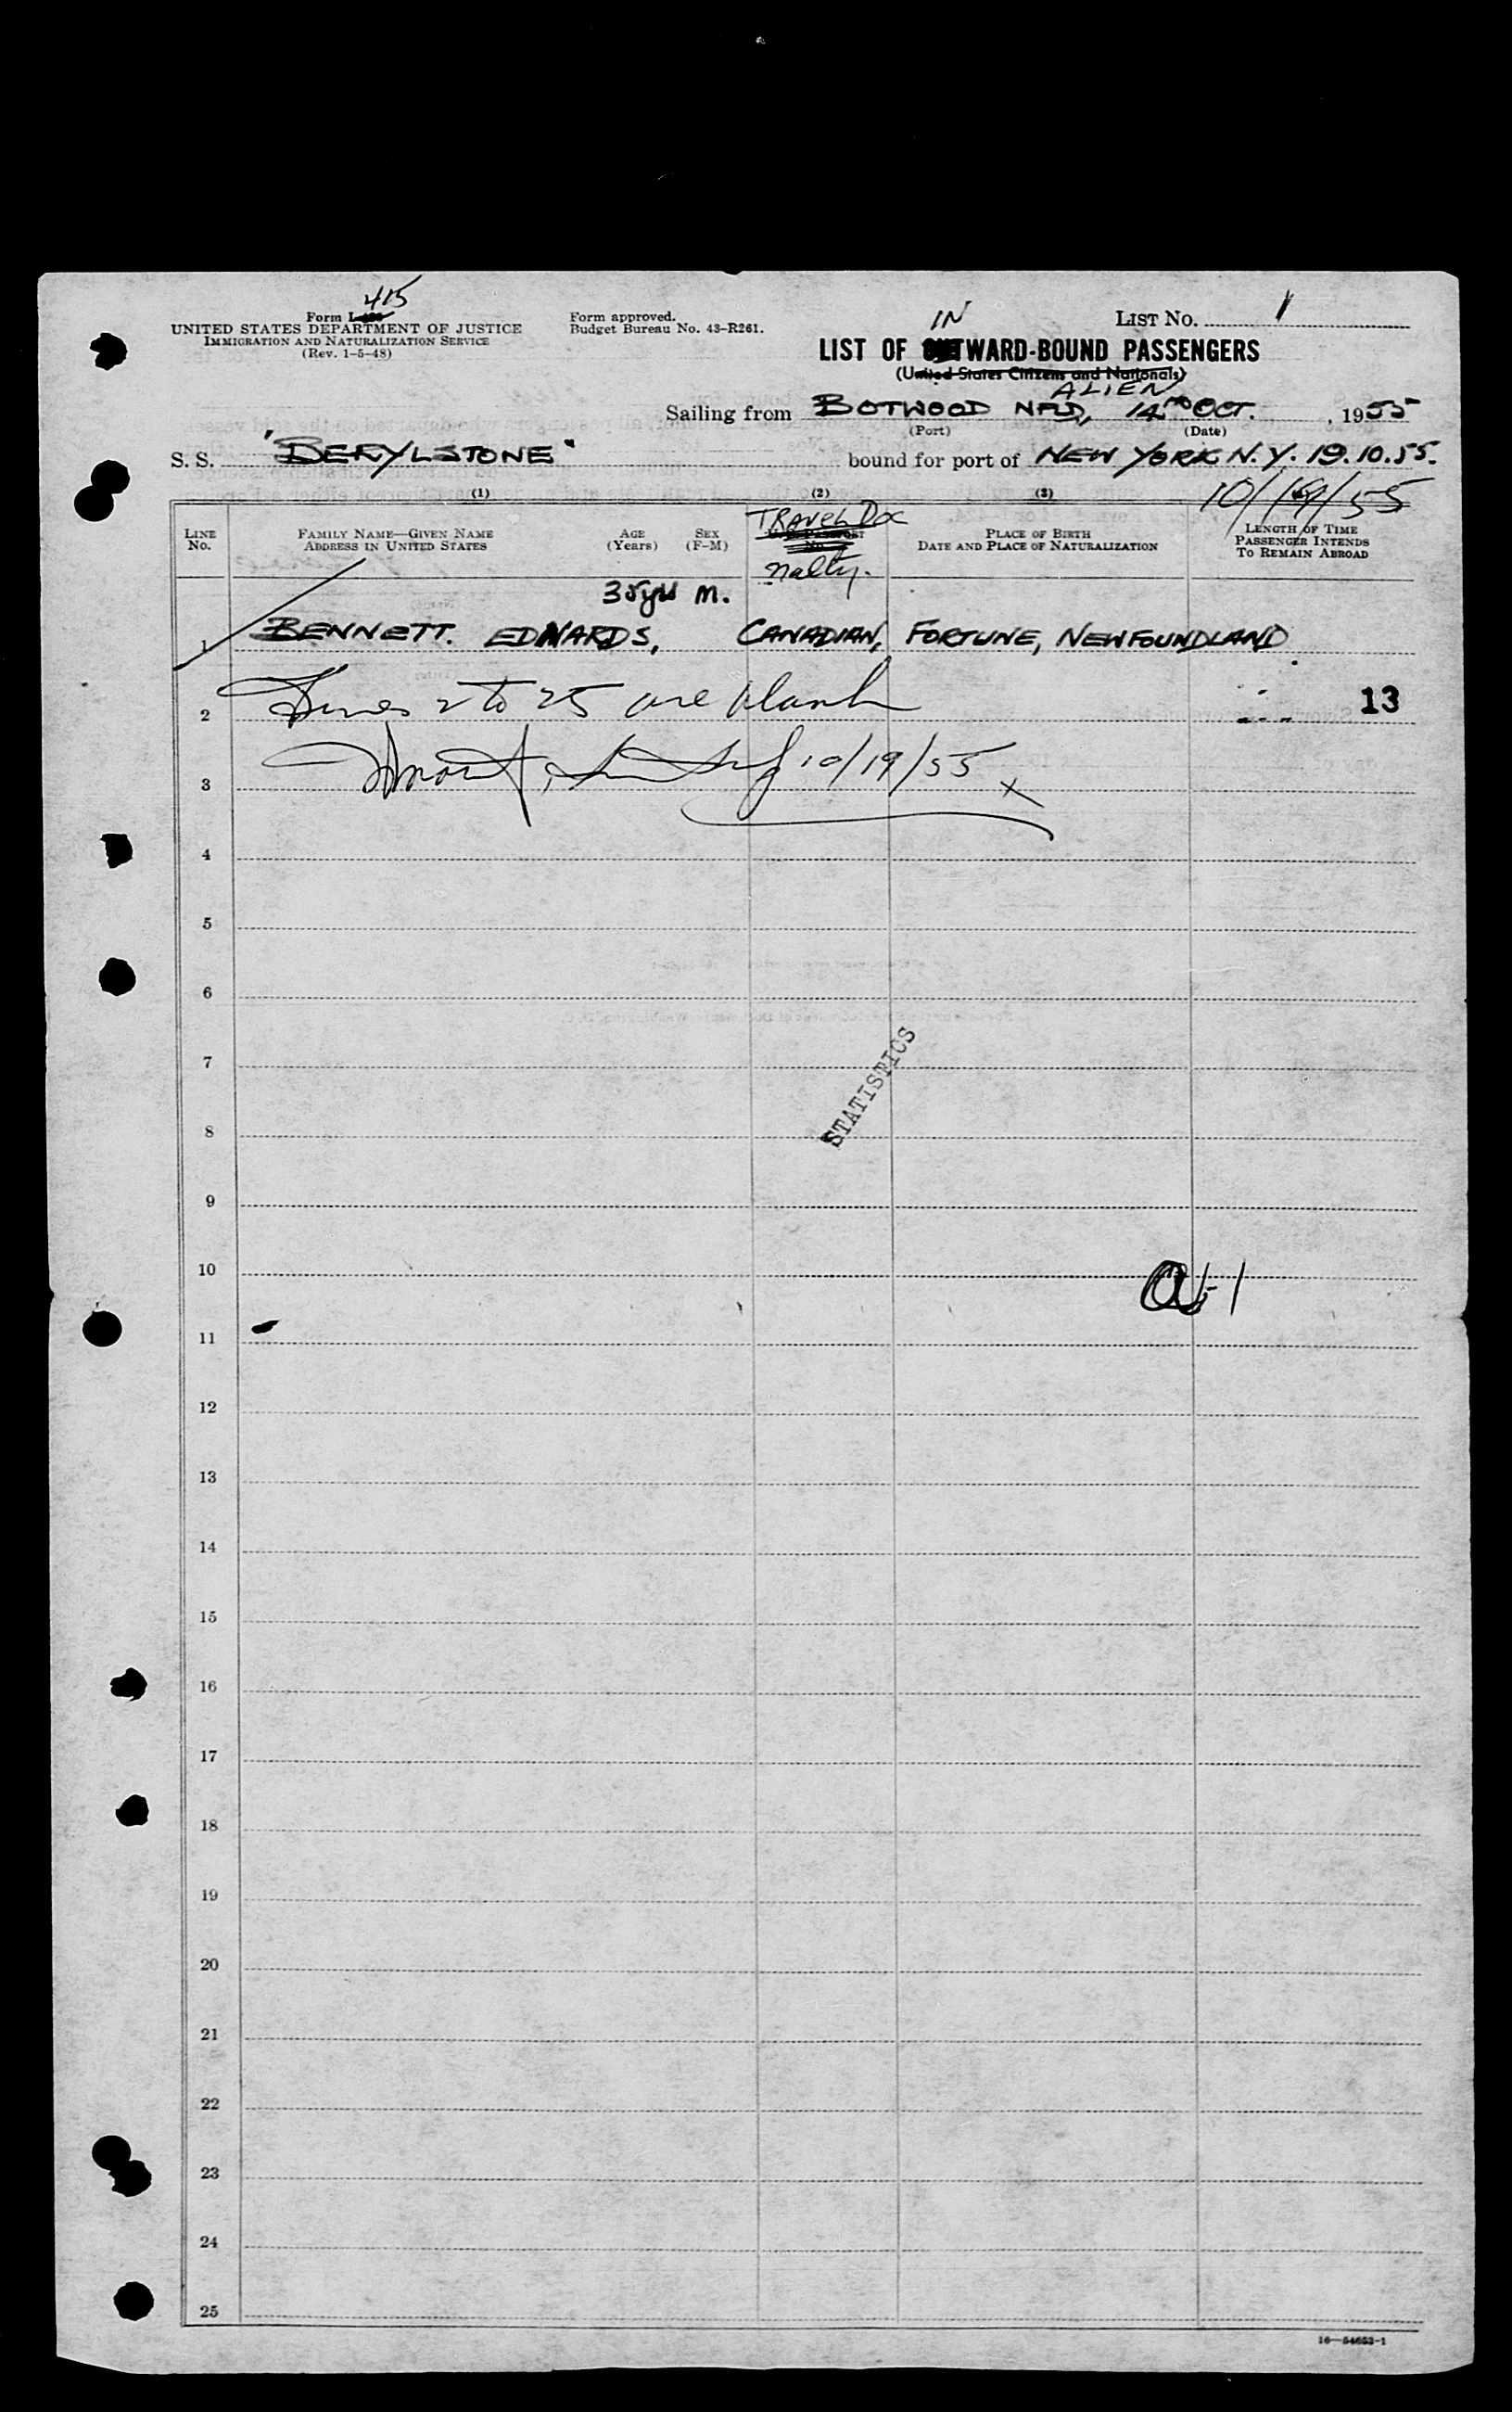 415
Form I-
UNITED STATES DEPARTMENT OF JUSTICE
IMMIGRATION AND NATURALIZATION SERVICE
(Rev. 1-5-48)
Form approved.
Budget Bureau No. 43-R261.
LIST NO. 1
IN
LIST OF OUTWARD-BOUND PASSENGERS
(United States Citizens and Nationals)
ALIEN
Sailing from BOTWOOD NFLD, 14TH OCT. , 1955
(Port) (Date)
S. S. "BERYLSTONE" bound for port of NEW YORK N.Y. 19.10.55.
10/19/55
(1) (2) (3)
LINE No.
FAMILY NAME—GIVEN NAME
ADDRESS IN UNITED STATES
AGE (Years)
SEX (F-M)
TRAVEL DOC
U. S. PASSPORT
No.
Nalty.
PLACE OF BIRTH
DATE AND PLACE OF NATURALIZATION
LENGTH OF TIME
PASSENGER INTENDS
TO REMAIN ABROAD
35yrs M.
1 BENNETT. EDWARDS, CANADIAN, FORTUNE, NEWFOUNDLAND
2 Lines 2 to 25 are blank 13
3 10/19/55 x
4
5
6
7
STATISTICS
8
9
10
11
12
13
14
15
16
17
18
19
20
21
22
23
24
25
16—54652-1